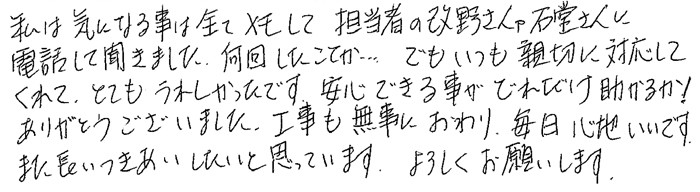 私は気になる事は全てメモして担当者の改野さんや石堂さんに
電話して聞きました。何回したことか… でもいつも親切に対応して
くれて、とてもうれしかったです。安心できる事がどれだけ助かるか!
ありがとうございました。工事も無事におわり、毎日心地いいです。
また長いつきあいしたいと思っています。よろしくお願いします。